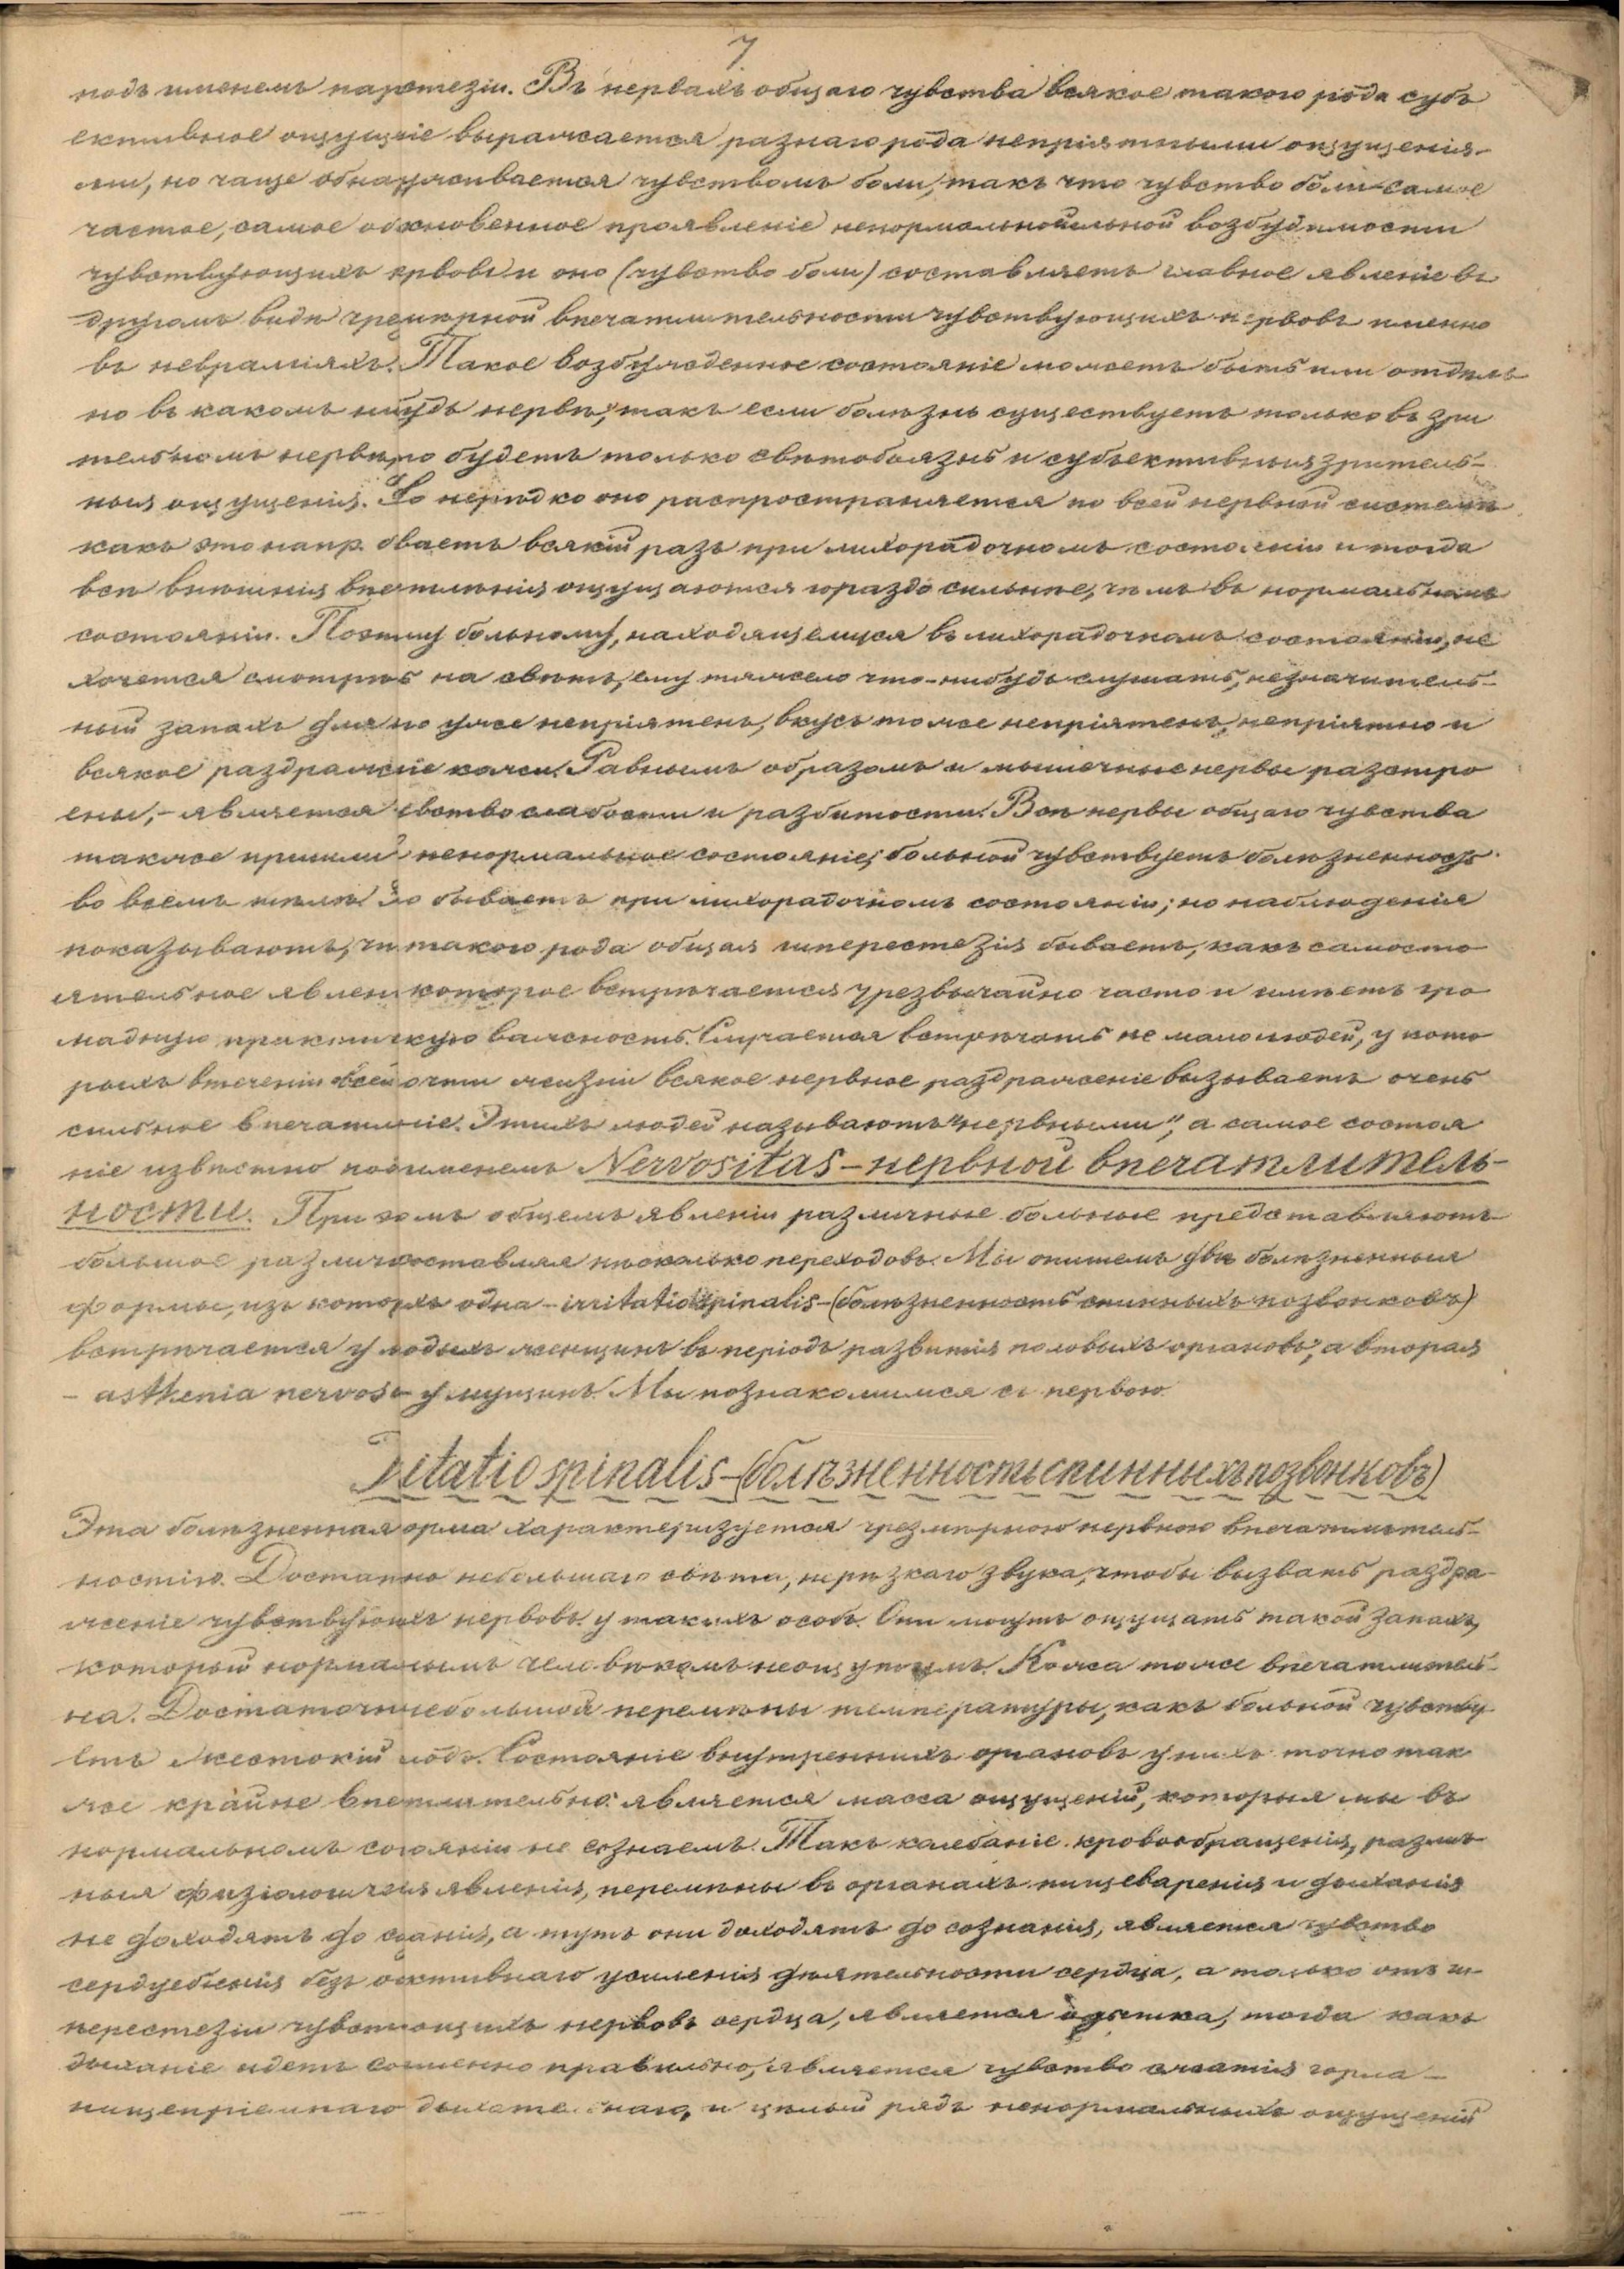 7
подъ именемъ парэстезіи. Въ нервахъ общаго чувства всякое такого рода субъ
ективное ощущеіе выражается разнаго рода непріятными ощущенія-
ми, но чаще обнаруживается чувствомъ боли, такъ что чувство боли самое
частое, самое обыкновенное проявленіе ненормальной возбудимости
чувствующихъ нервовъ и оно (чувство боли) составляетъ главное явленіе въ
другомъ видѣ чрезмѣрной впечатлительности чувствующихъ нервовъ именно
въ невралгіяхъ. Такое возбужденное состояніе можетъ быть или отдѣль
но въ какомъ нибудь нервѣ, такъ если болѣзнь существуетъ только въ зри
тельномъ нервѣ, то будетъ только свѣтобоязнь и субъективныя зритель-
ныя ощущенія. Но нерѣдко оно распространяется по всей нервной системѣ
какъ это напр. бываетъ всякій разъ при лихорадочномъ состояніи и тогда
всѣ внѣшнія впечатлѣнія ощущаются гораздо сильнѣе, чѣмъ въ нормальномъ
состояніи. Поэтому больному, находящемуся въ лихорадочномъ состояніи, не
хочется смотрѣть на свѣтъ, ему тяжело что-нибудь слушать, незначитель-
ный запахъ для него уже непріятенъ, вкусъ тоже непріятенъ, непріятно и
всякое раздраженіе кожи. Равнымъ образомъ и мышечные нервы разстро
ены, - является чувство слабости и разбитости. Всѣ нервы общаго чувства
также пришли въ ненормальное состояніе; больной чувствуетъ болѣзненность
во всемъ тѣлѣ. Это бываетъ при лихорадочномъ состояніи; но наблюденія
показываютъ, что такого рода общая гиперестезія бываетъ, какъ самосто
ятельное явленіе, которое встрѣчается чрезвычайно часто и имѣетъ гро
мадную практическую важность. Случается встрѣчать не мало людей, у кото
рыхъ втеченіи всей почти жизни всякое нервное раздраженіе вызываетъ очень
сильное впечатлѣніе. Этихъ людей называютъ "нервными", а самое состоя
ніе извѣстно подъ именемъ Nervositas - нервной впечатлитель-
ности. При этомъ общемъ явленіи различные больные представляютъ
большое различіе, составляя нѣсколько переходовъ. Мы опишемъ двѣ болѣзненныя
формы, изъ которыхъ одна - irritatio spinalis - (болѣзненность спинныхъ позвонковъ)
встрѣчается у молодыхъ женщинъ въ періодъ развитія половыхъ органовъ, а вторая
- asthenia nervosa - у мущинъ. Мы познакомимся съ первою
Irritatio spinalis - (болѣзненность спинныхъ позвонковъ)
Эта болѣзненная форма характеризуется чрезмѣрною нервною впечатлитель-
ностію. Достаточно небольшаго свѣта, нерѣзкаго звука, чтобы вызвать раздра-
женіе чувствующихъ нервовъ у такихъ особъ. Они могутъ ощущать такой запахъ,
который нормальнымъ человѣкомъ неощутимъ. Кожа тоже впечатлитель-
на. Достаточно небольшой перемѣны температуры, какъ больной чувству
етъ жестокій ознобъ. Состояніе внутреннихъ органовъ у нихъ точно так
же крайне впечатлительно: является масса ощущеній, которыя мы въ
нормальномъ состояніи не сознаемъ. Такъ колебаніе кровообращенія, различ
ныя физіологическія явленія, перемѣны въ органахъ пищеваренія и дыханія
не доходятъ до сознанія, а тутъ они доходятъ до сознанія, является чувство
сердцебіенія безъ объективнаго усиленія дѣятельности сердца, а только отъ ги-
перестезіи чувствующихъ нервовъ сердца, является одышка, тогда какъ
дыханіе идетъ совершенно правильно, является чувство сжатія горла -
пищепріемнаго дыхательнаго, и цѣлый рядъ ненормальныхъ ощущеній